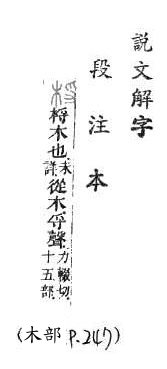 說文解字
段注本
桴 桴木也 未詳 從木孚聲 力輟切 十五部
(木部 P.247)